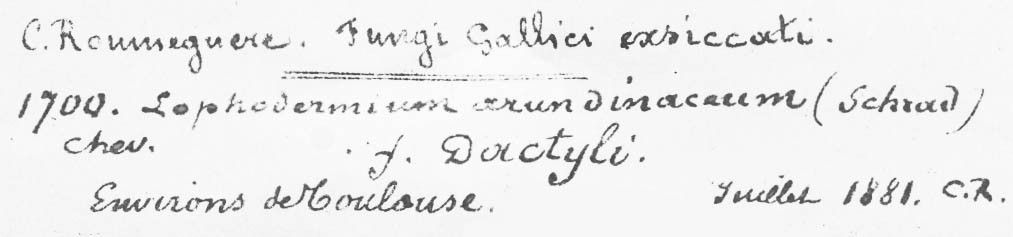 C. Roumeguere. Fungi Gallici exsiccati.
1700. Lophodermium arundinaceum (Schrad)
Chev. f. Dactyli.
Environs de Toulouse. Juillet 1881. C.R.